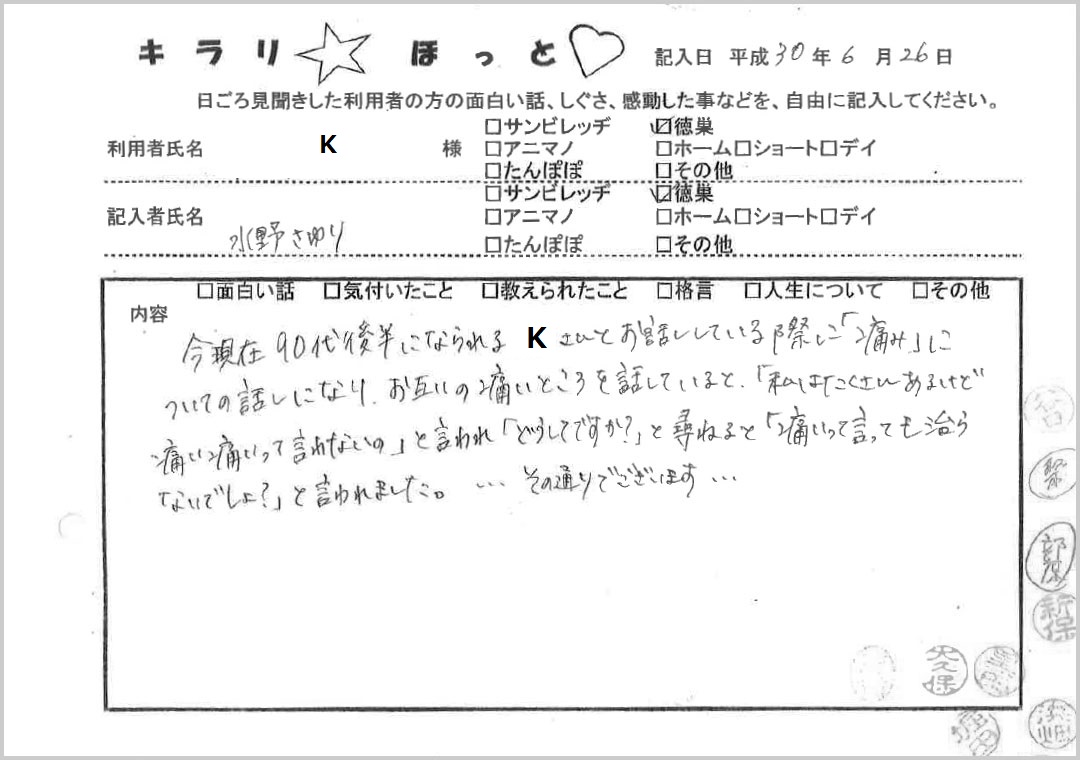 キラリ☆ ほっと♡ 記入日 平成30年6月26日
日ごろ見聞きした利用者の方の面白い話、しぐさ、感動した事などを、自由に記入してください。
利用者氏名 K 様
□サンビレッヂ ☑徳巣
□アニマノ □ホーム□ショート□デイ
□たんぽぽ □その他
記入者氏名 水野さゆり
□サンビレッヂ ☑徳巣
□アニマノ □ホーム□ショート□デイ
□たんぽぽ □その他
内容 □面白い話 □気付いたこと □教えられたこと □格言 □人生について □その他
今現在90代後半になられるKさんとお話ししている際に「痛み」に
ついての話しになり、お互いの痛いところを話していると、「私はたくさんあるけど
痛い痛いって言わないの」と言われ「どうしてですか?」と尋ねると「痛いって言っても治ら
ないでしょ?」と言われました。…その通りでございます…
新保
大久保